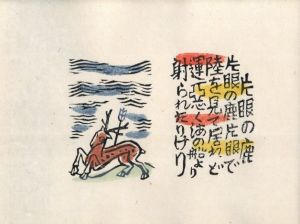 片眼の鹿
片眼の鹿片眼で
陸を見て居れど
運悪く海の船より
射られたりけり